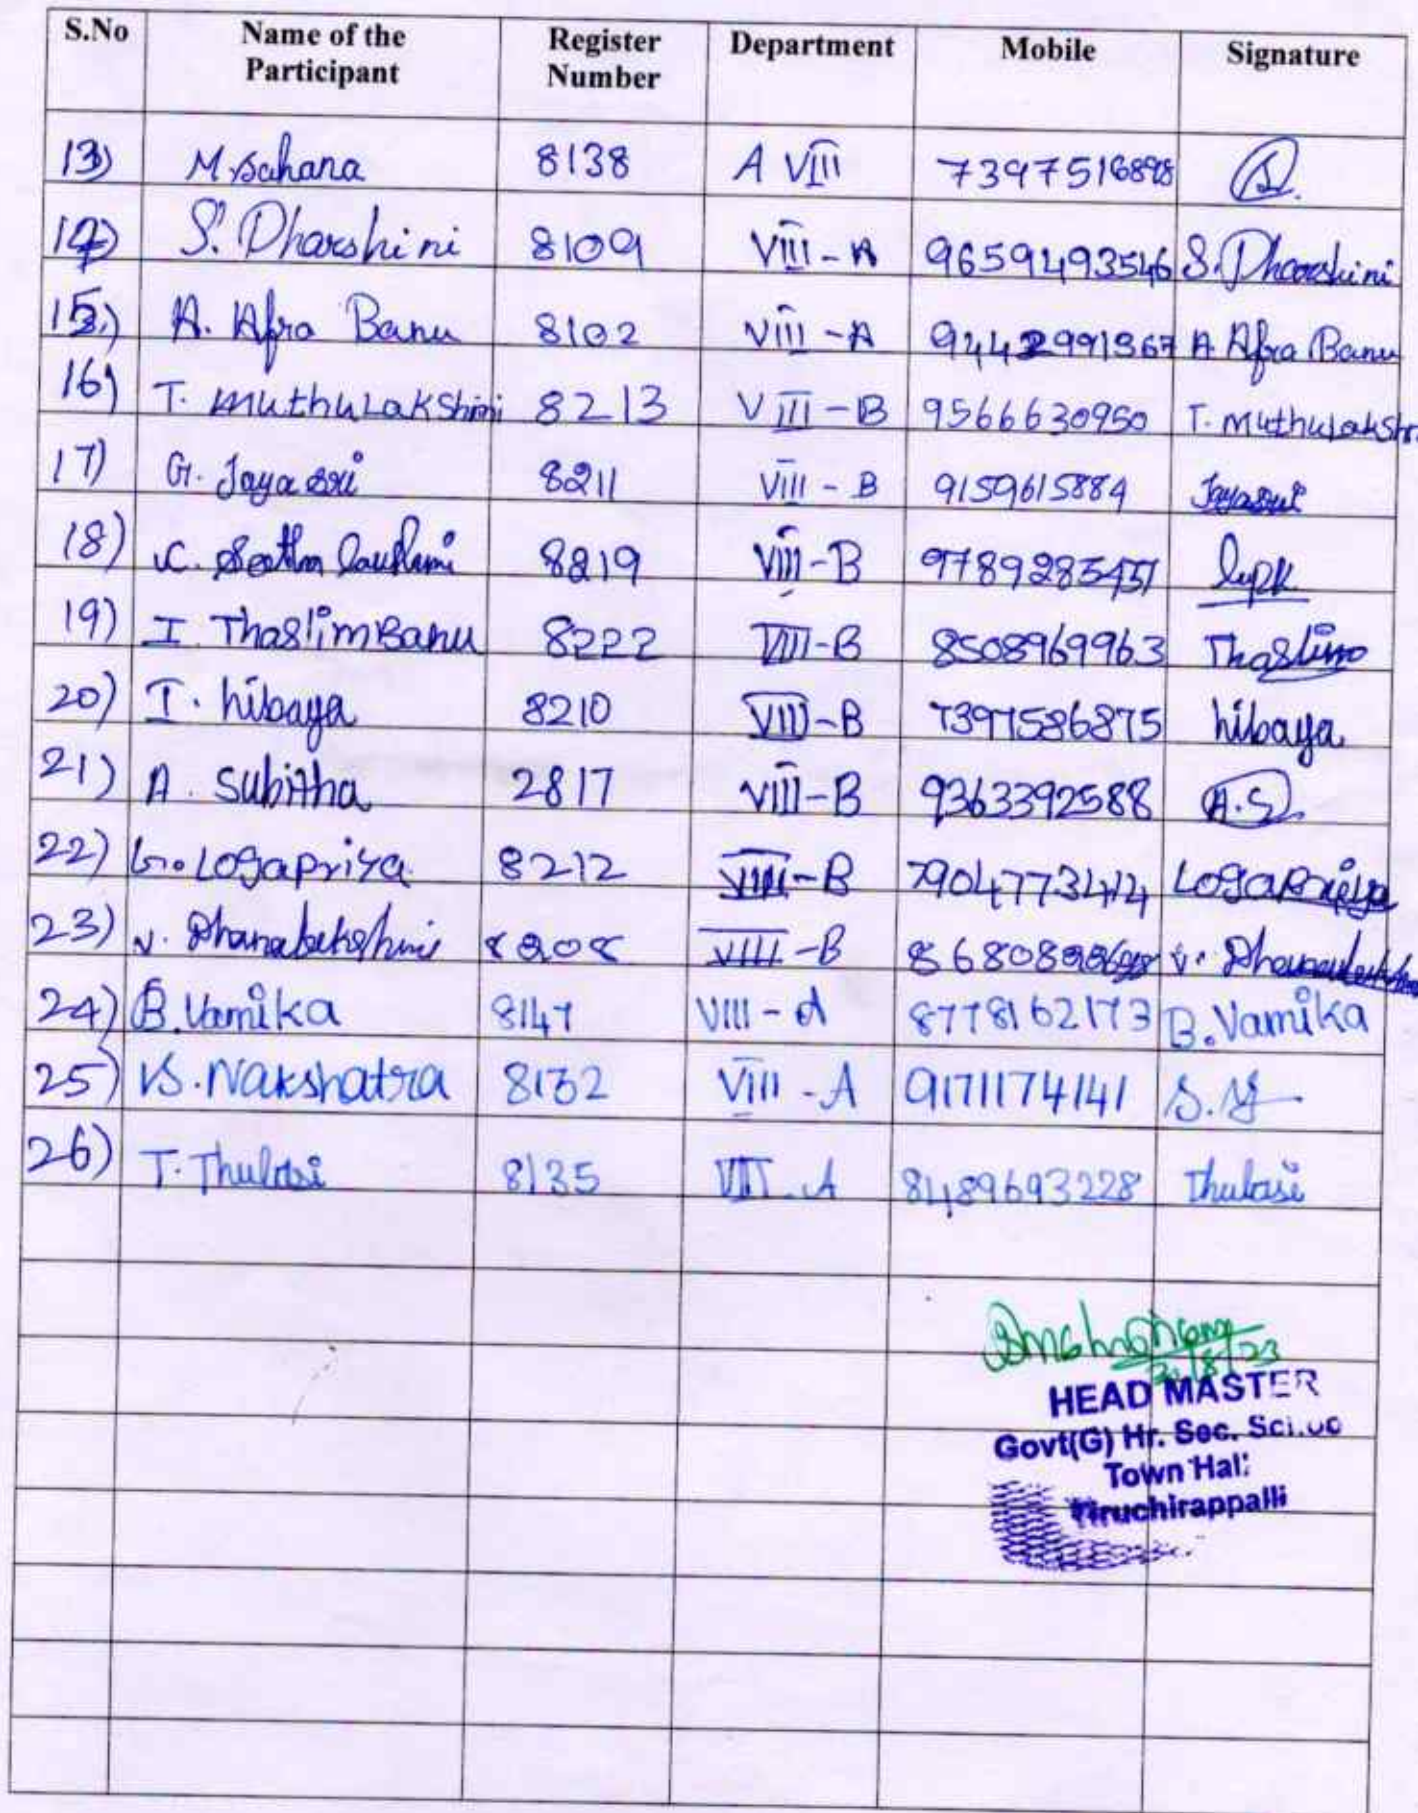 S.No Name of the Participant Register Number Department Mobile Signature
13) M. Sahana 8138 A VIII 7397516898
14) S. Dharshini 8109 VIII - A 9659493546 S. Dharshini
15) A. Afra Banu 8102 VIII - A 9442991367 A. Afra Banu
16) T. MuthuLakshmi 8213 VIII - B 9566630950 T. Muthulakshm
17) G. Jayasri 8211 VIII - B 9159615884 Jayasri
18) 8219 VIII - B 9789285451
19) I ThaslimBanu 8222 VIII-B 8508969963 Thaslim
20) I. hibaya 8210 VIII-B 7397586875 hibaya
21) A. Subitha 2817 VIII-B 9363392588 A.S
22) G. Logapriya 8212 VIII-B 7904773414 Logapriya
23) V. 8208 VIII-B V.
24) B. Vamika 8147 VIII - A 8778162173 B. Vamika
25) S. Nakshatra 8132 VIII - A 9171174141
26) T. Thulasi 8135 VIII - A 8489693228 Thulasi
HEAD MASTER
Govt(G) Hr. Sec.
Town Hall
Tiruchirappalli